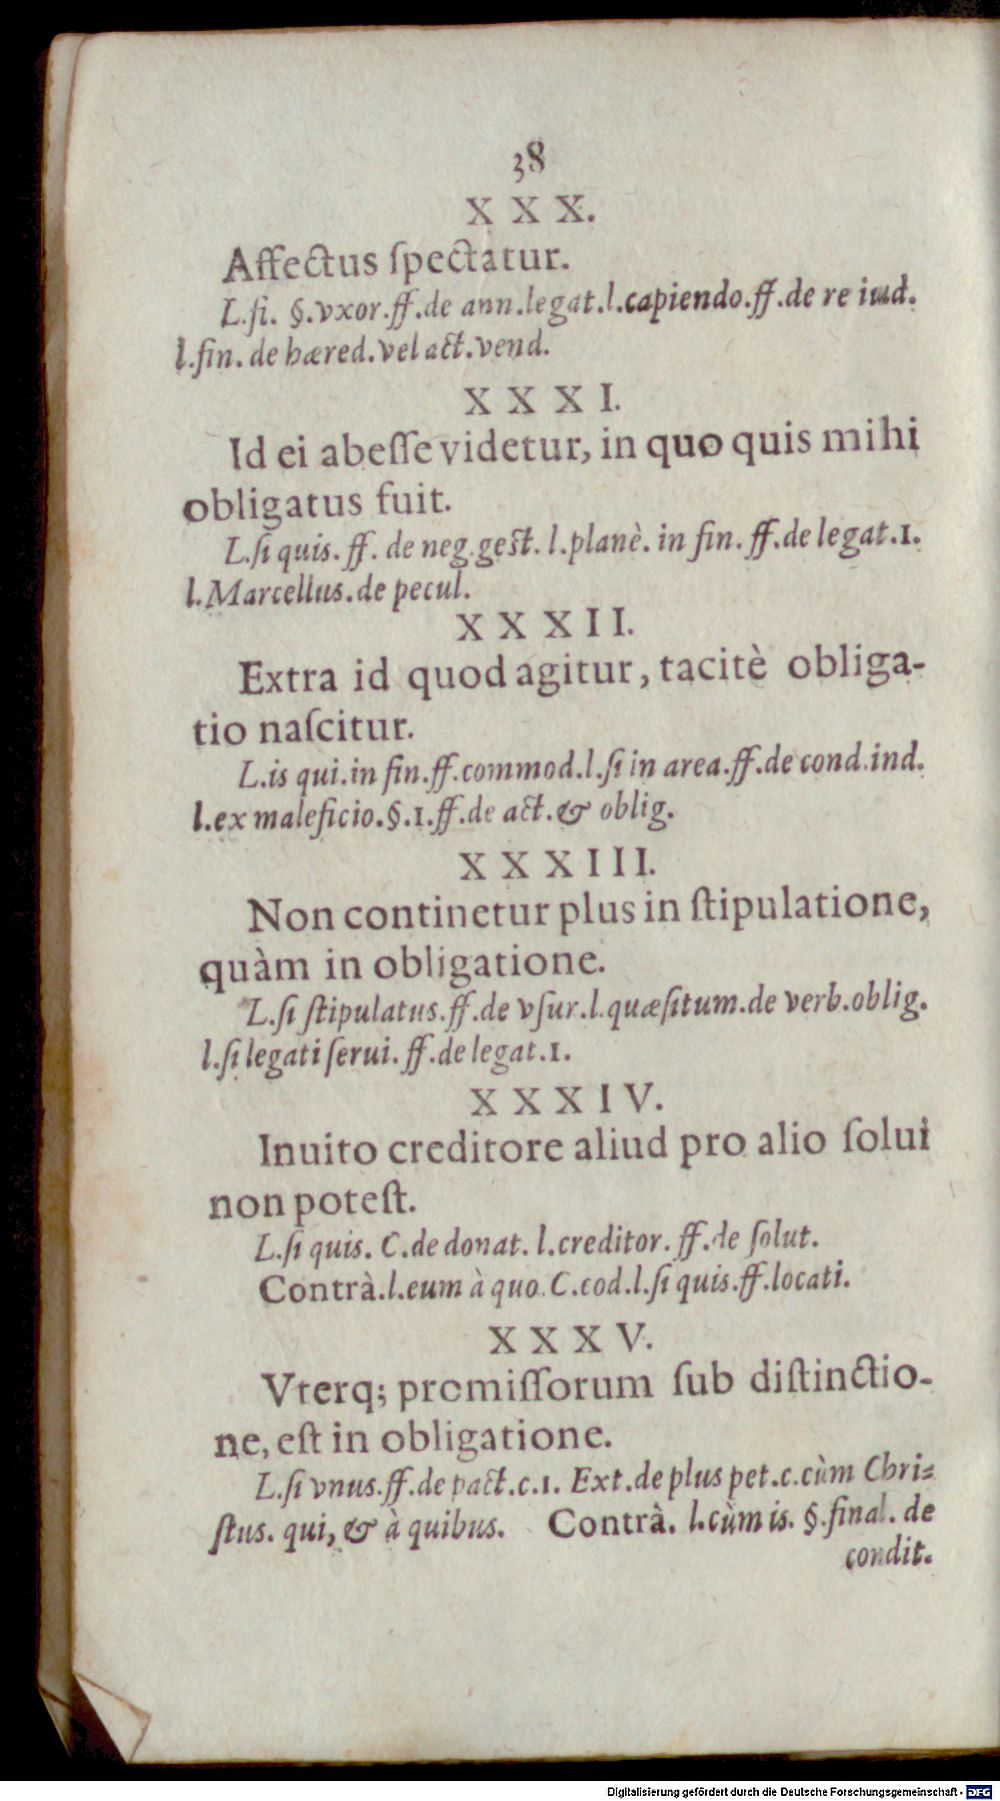 38
X X X.
Affectus ſpectatur.
L.ſi. §.vxor.ff.de ann.legat.l.capiendo.ff.de re iud.
l.fin. de hæred.vel act.vend.
X X X I.
Id ei abeſſe videtur, in quo quis mihi
obligatus fuit.
L.ſi quis. ff. de neg.geſt. l.planè. in fin. ff.de legat.1.
l.Marcellus.de pecul.
X X X I I.
Extra id quod agitur, tacitè obliga-
tio naſcitur.
L.is qui.in fin.ff.commod.l.ſi in area.ff.de cond.ind.
l.ex maleficio.§.1.ff.de act.& oblig.
X X X I I I.
Non continetur plus in ſtipulatione,
quàm in obligatione.
L.ſi ſtipulatus.ff.de vſur.l.quæſitum.de verb.oblig.
l.ſi legati ſerui. ff.de legat.1.
X X X I V.
Inuito creditore aliud pro alio ſolui
non poteſt.
L.ſi quis. C.de donat. l.creditor. ff.de ſolut.
Contrà.l.eum à quo. C.eod.l.ſi quis.ff.locati.
X X X V.
Vterq; promiſſorum ſub diſtinctio-
ne, eſt in obligatione.
L.ſi vnus.ff.de pact.c.1. Ext.de plus pet.c.cùm Chri-
ſtus. qui, & à quibus. Contrà. l.cùm is. §.final. de
condit.
Digitalisierung gefördert durch die Deutsche Forschungsgemeinschaft - DFG